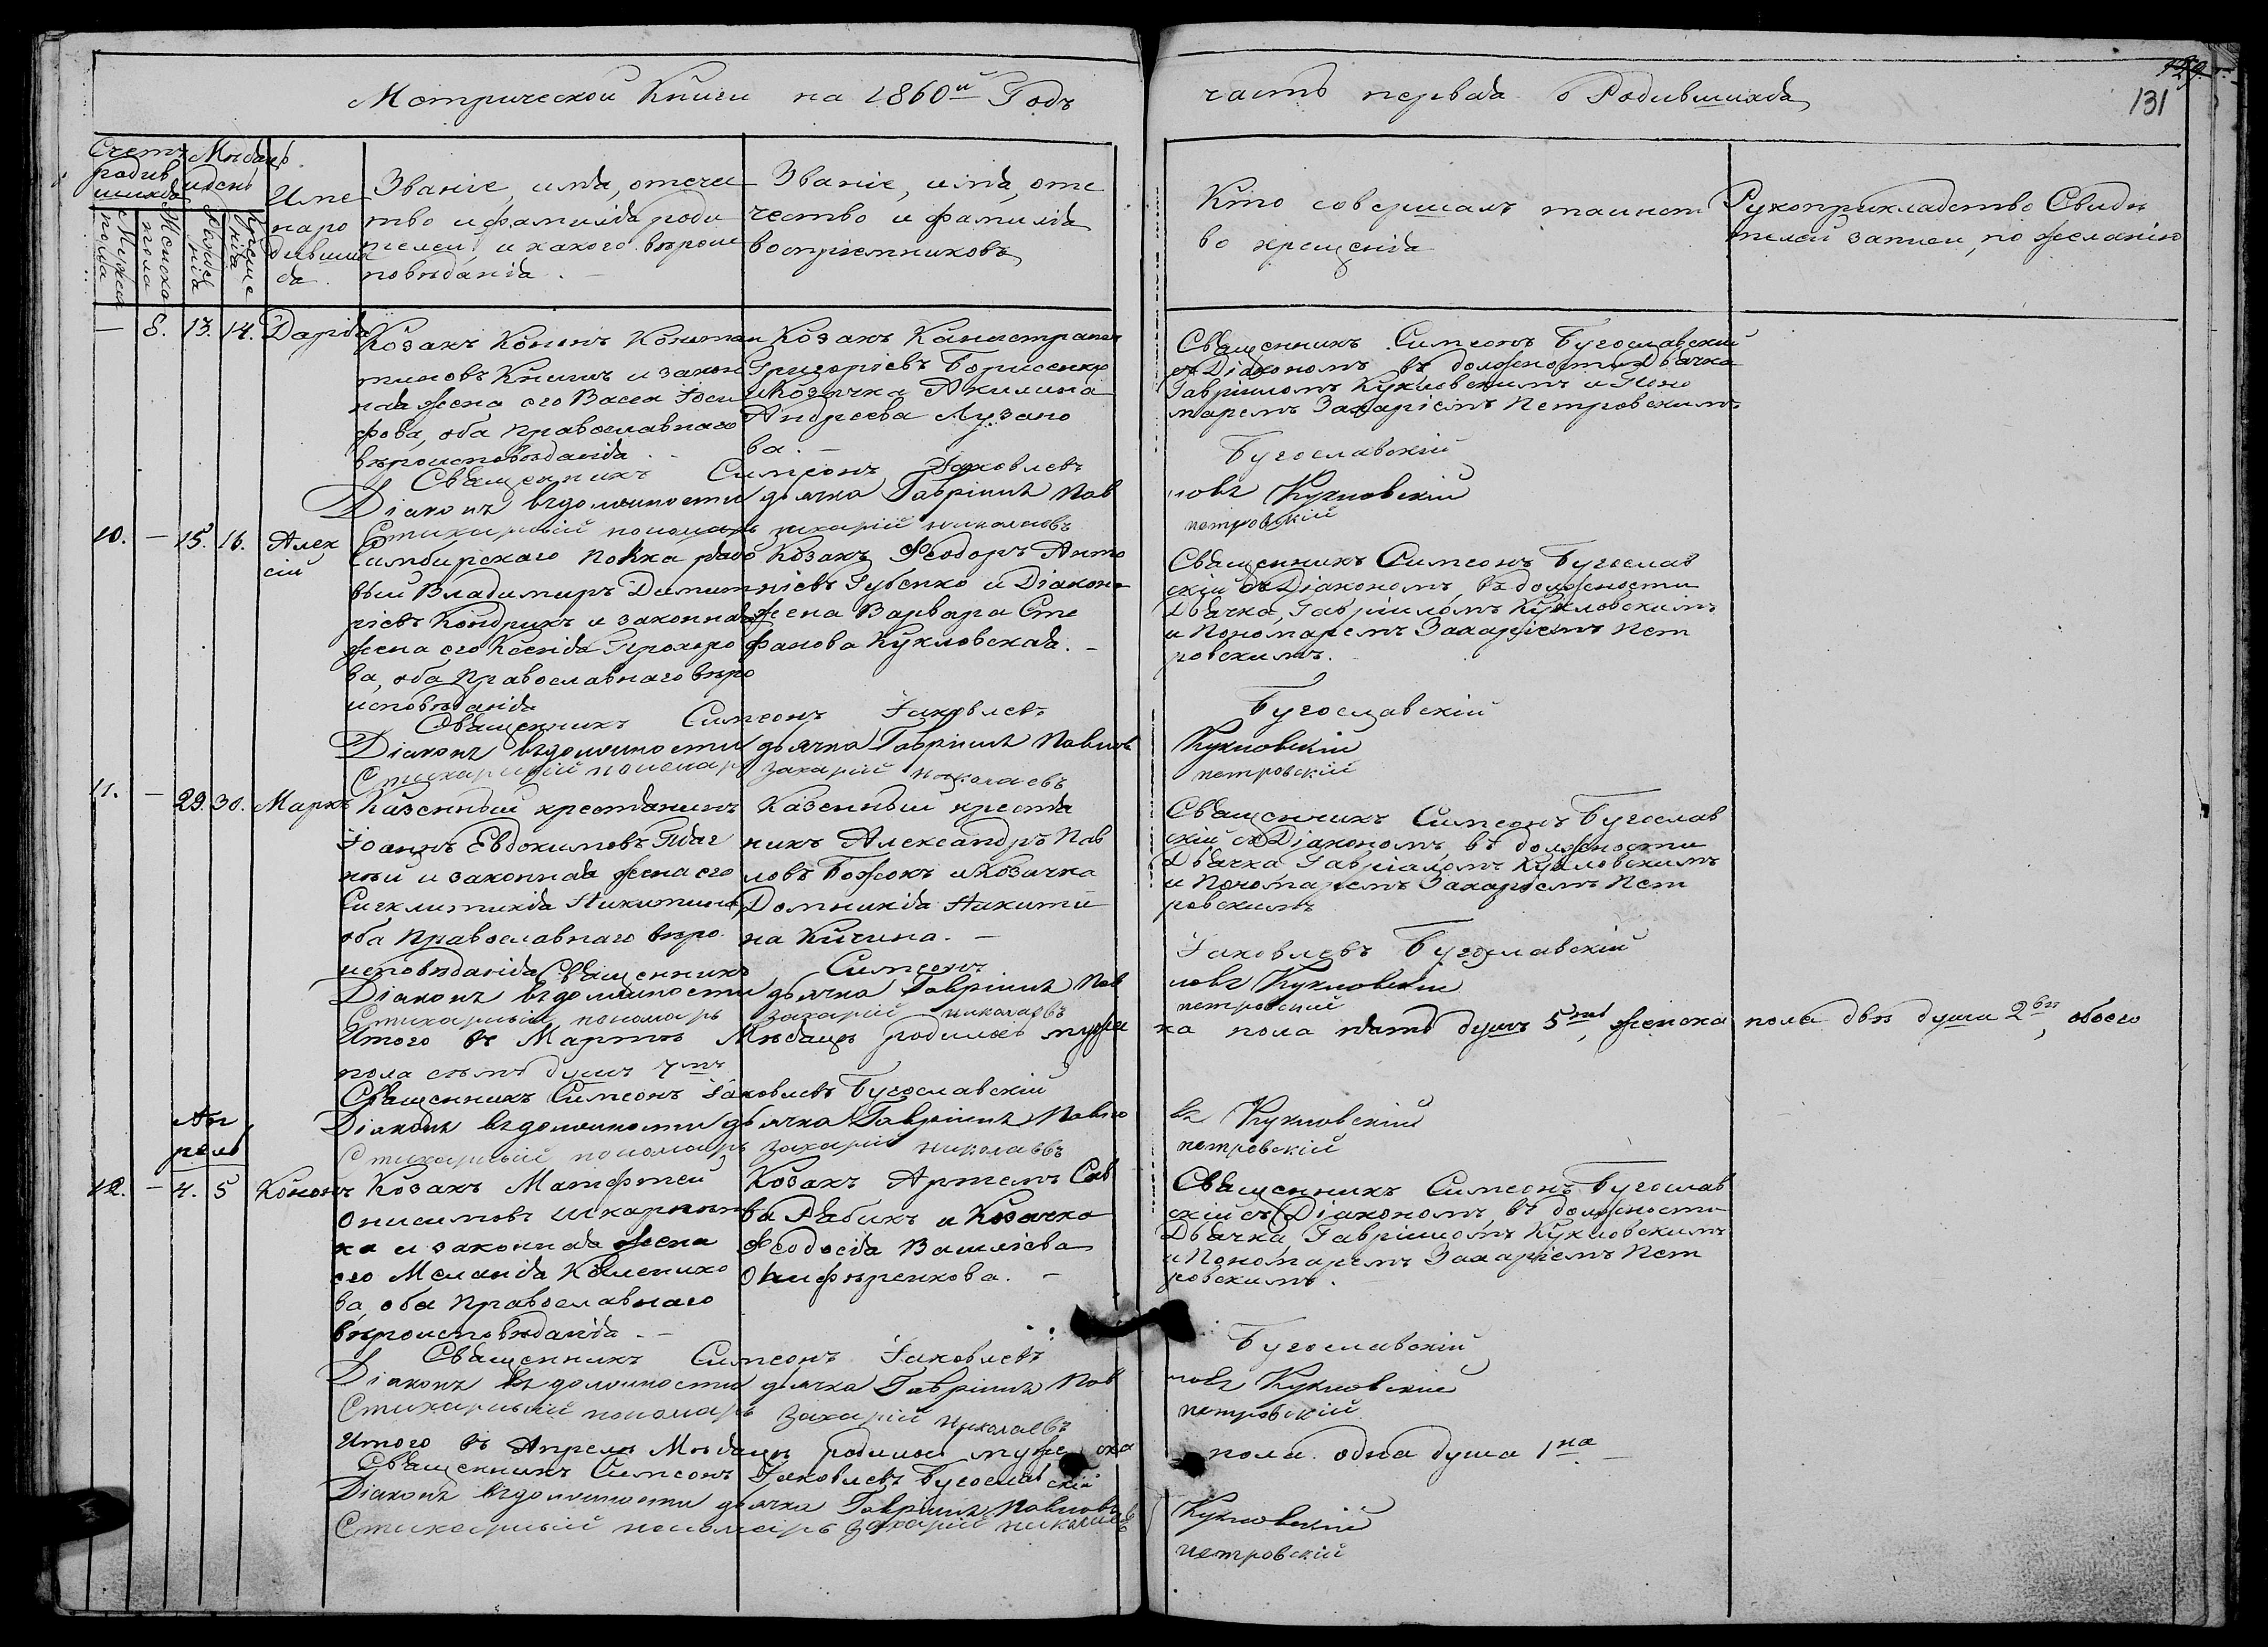 Метрической Книги на 1860й Годъ
часть первая о Родившихся
131
Счетъ родив шихся
Мужеска пола
Женска пола
Мѣсяцъ и день
Рожденія
Крещенія
Име на ро дивших ся.
Званіе, имя, отчес
тво и фамилія роди
телей, и какого вѣрои
повѣданія. —
Званіе, имя, оте
чество и фамилія
воспріемниковъ
Кто совершалъ таинст
во крещенія
Рукоприкладство Свидѣ
телей записи, по желанію
— 8. 13. 14. Дарія
Козакъ Кононъ Констан
тиновъ Книшъ и закон
ная жена его Васса Іоси
фова, оба Православнаго
вѣроисповѣданія. —
Козакъ Канистратъ
Григоріевъ Борисенко
и Козачка Акилина
Андреева Лузано
ва. —
Священникъ Симеонъ Бугославскій
съ Діакономъ въ должности Дьячка
Гавріиломъ Кукловскимъ и Поно
маремъ Захаріемъ Петровскимъ
Священникъ Симеонъ Іаковлевъ Бугославскій
Діаконъ въ должности дьячка Гавріилъ Пав ловъ Кукловскій
Стихарный пономарь захарій николаевъ петровскій
10. — 15. 16. Алек сій
Симбирскаго Полка рядо
вый Владимиръ Димит
ріевъ Кондрикъ и законная
жена его Ксенія Прохоро
ва, оба Православнаго вѣро
исповѣданія
Козакъ Феодоръ Анто
ніевъ Губенко и Діакона
жена Варвара Сте
фанова Кукловская. —
Священникъ Симеонъ Бугослав
скій съ Діакономъ, въ должности
Дьячка, Гавріиломъ Кукловскимъ
и Пономаремъ Захаріемъ Пет
ровскимъ.
Священникъ Симеонъ Іаковлевъ Бугославскій
Діаконъ въ должности дьячка Гавріилъ Павловъ Кукловскій
Стихарный пономарь захарій николаевъ петровскій
11. — 29. 30. Маркъ
Казенный крестянинъ
Іоаннъ Евдокимовъ
и законная жена его
Сигклитикія Никитина,
оба Православнаго вѣро
исповѣданія
Казенный крестя
нинъ Александръ Пав
ловъ Божокъ и Козачка
Домникія Никити
на Кичина. —
Священникъ Симеонъ Бугослав
скій съ Діакономъ, въ должности
Дьячка Гавріиломъ Кукловскимъ
и Пономаремъ Захаріемъ Пет
ровскимъ
Священникъ Симеонъ Іаковлевъ Бугославскій
Діаконъ въ должности дьячка Гавріилъ Пав ловъ Кукловскій
Стихарный пономарь захарій николаевъ петровскій
Итого въ Мартѣ Мѣсяцѣ родилось мужес ка пола пять душъ 5ть, женска пола двѣ души 2вѣ, обоего
пола семь душъ 7мь
Священникъ Симеонъ Іаковлевъ Бугославскій
Діаконъ въ должности дьячка Гавріилъ Павло въ Кукловскій
Стихарный пономарь захарій николаевъ петровскій
Ап
рель
12. — 4. 5 Кононъ
Козакъ Матфтей
Онисимовъ Шкарпит
ка и законная жена
его Меланія Коленико
ва, оба Православнаго
вѣроисповѣданія. —
Козакъ Артемъ Сав
ва Рябикъ и Козачка
Феодосія Василіева
Онифѣренкова. —
Священникъ Симеонъ Бугослав
скій съ Діакономъ въ должности
Дьячка Гавріиломъ Кукловскимъ
и Пономаремъ Захаріемъ Пет
ровскимъ.
Священникъ Симеонъ Іаковлевъ Бугославскій
Діаконъ въ должности дьячка Гавріилъ Пав ловъ Кукловскій
Стихарный пономарь захарій николаевъ петровскій
Итого въ Апрелѣ Мѣсяцѣ родилось мужес ка пола одна душа 1на —
Священникъ Симеонъ Іаковлевъ Бугославскій
Діаконъ въ должности дьячка Гавріилъ Павловъ Кукловскій
Стихарный пономарь захарій николаевъ петровскій